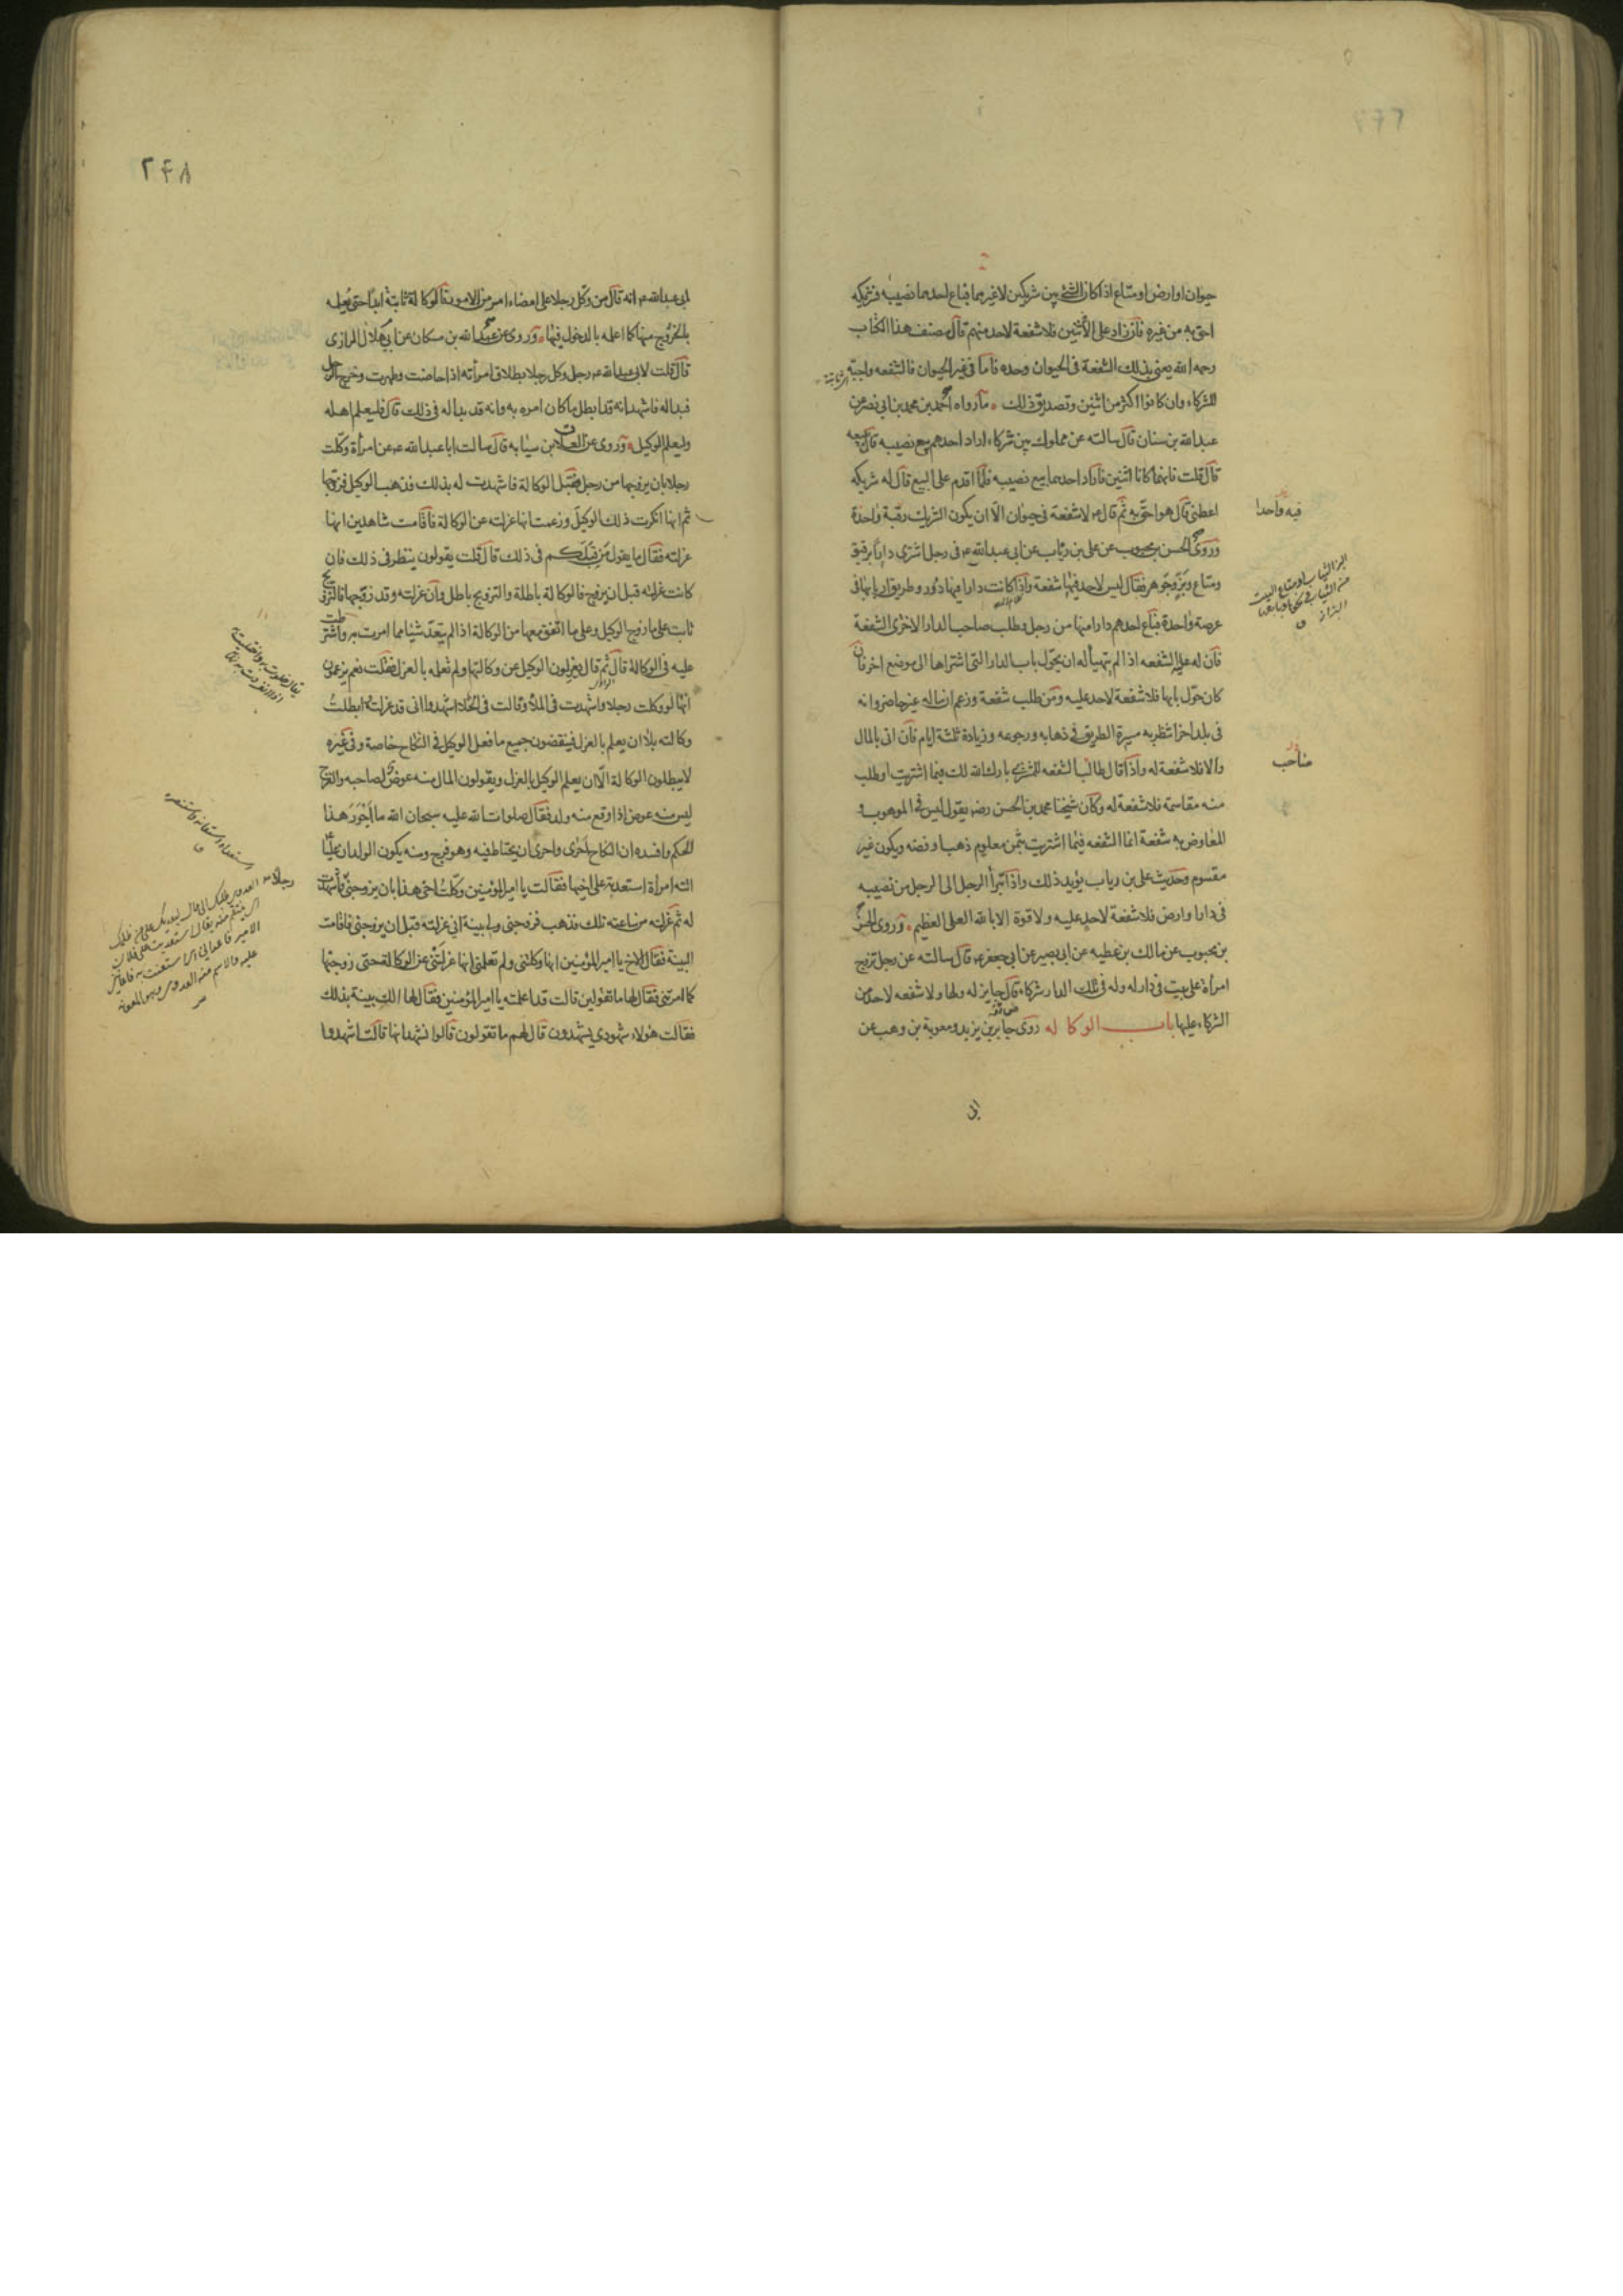 حيوان او ارض او متاع اذا كان الشئ بين شريكين لا غيرهما فباع احدهما نصيبه فشريكه
احق به من غيره فان زاد على الاثنين فلا شفعة لاحد منهم قال مصنف هذا الكتاب
رحمه الله يعنى بذلك الشفعة فى الحيوان وحده فاما فى غير الحيوان فالشفعه واجبة
للشركاء وان كانوا اكثر من اثنين وتصديق ذلك ما رواه احمد بن محمد بن ابى نصر عن
عبدالله بن سنان قال سالته عن مملوك بين شركاء اراد احدهم بيع نصيبه قال يبيعه
قال قلت فانهما كانا اثنين فاراد احدهما بيع نصيبه فلما اقدم على البيع قال له شريكه
اعطنى قال هو احق به ثم قال ع لا شفعة فى حيوان الا ان يكون الشريك رقبة واحدة
فيه واحدا
وروى الحسن بن محبوب عن على بن رئاب عن ابى عبدالله ع فى رجل اشترى دارا برقيق
ومتاع وبز وجوهر فقال ليس لاحد فيها شفعة واذا كانت دارا فيها دور وطريق اربابها فى
عرصة واحدة فباع احدهم دارا منها من رجل وطلب صاحب الدار الاخرى الشفعة
فان له عليه الشفعه اذا لم يتهيأ له ان يحول باب الدار التى اشتراها الى موضع اخر فان
كان حول بابها فلا شفعة لاحد عليه ومن طلب شفعة وزعم ان ماله غير حاضر وانه
فى بلد اخر انتظر به مسيرة الطريق فى ذهابه ورجوعه وزيادة ثلثة ايام فان اتى بالمال
والا فلا شفعة له واذا قال طالب الشفعه للمشترى بارك الله لك فيما اشتريت او طلب
منه مقاسمة فلا شفعة له وكان شيخنا محمد بن الحسن رضه يقول ليس فى الموهوب و
المعاوض به شفعة انما الشفعه فيما اشتريت بثمن معلوم ذهب او فضه ويكون غير
مقسوم وحديث على بن رياب يؤيد ذلك واذا تبرأ الرجل الى الرجل من نصيبه
فى دار او ارض فلا شفعة لاحد عليه ولا قوة الا بالله العلى العظيم وروى الحسن
بن محبوب عن مالك بن عطيه عن ابى بصير عن ابى جعفر ع قال سالته عن رجل تزوج
امرأة على بيت فى دار له وله فى تلك الدار شركاء قال جايز له ولها ولا شفعه لاحد من
الشركاء عليها باب الوكاله روى جابر بن يزيد ومعوية بن وهب عن
ابى
٢٤٨
ابى عبدالله ع انه قال من وكل رجلا على امضاء امر من الامور فالوكالة ثابتة ابدا حتى يعلمه
بالخروج منها كما اعلمه بالدخول فيها وروى عن عبدالله بن مسكان عن ابى هلال الرازى
قال قلت لابى عبدالله ع رجل وكل رجلا بطلاق امرأته اذا حاضت وطهرت وخرج الرجل
فبدا له فاشهد انه قد ابطل ما كان امره به وانه قد بدا له فى ذلك قال فليعلم اهله
وليعلم الوكيل وروى عن العلاء بن سيابه قال سالت ابا عبدالله ع عن امرأة وكلت
رجلا بان يزوجها من رجل فقبل الوكالة فاشهدت له بذلك فذهب الوكيل فزوجها
ثم انها انكرت ذلك الوكيل وزعمت انها عزلته عن الوكالة فاقامت شاهدين انها
عزلته فقال ما يقول من قبلكم فى ذلك قال قلت يقولون ينظر فى ذلك فان
كانت عزلته قبل ان يزوج فالوكالة باطلة والتزويج باطل وان عزلته وقد زوجها فالتزويج
ثابت على ما زوج الوكيل وعلى ما اتفق معها من الوكالة اذا لم يتعد شيئا مما امرت به واشترطت
عليه فى الوكالة قال ثم قال يعزلون الوكيل عن وكالتها ولم تعلمه بالعزل فقلت نعم يزعمون
انها لو وكلت رجلا واشهدت فى الملأ وقالت فى الخلاء اشهدوا انى قد عزلته ابطلت
وكالته بلا ان يعلم بالعزل فينقضون جميع ما فعل الوكيل فى النكاح خاصة وفى غيره
لا يبطلون الوكالة الا ان يعلم الوكيل بالعزل ويقولون المال منه عوض لصاحبه والفرج
ليس منه عوض اذا وقع منه ولد فقال صلوات الله عليه سبحان الله ما اجور هذا
الحكم وافسده ان النكاح احرى واحرى ان يحتاط فيه وهو فرج ومنه يكون الولد ان عليا ع
اتته امرأة استعدته على اخيها فقالت يا امير المؤمنين وكلت اخى هذا بان يزوجنى رجلا فاشهدت
له ثم عزلته من ساعته تلك فذهب فزوجنى ولى بينة انى عزلته قبل ان يزوجنى فاقامت
البينة فقال الاخ يا امير المؤمنين انها وكلتنى ولم تعلمنى انها عزلتنى عن الوكالة حتى زوجتها
كما امرتنى فقال لها ما تقولين قالت قد اعلمته يا امير المؤمنين فقال لها الك بينة بذلك
فقالت هؤلاء شهودى يشهدون قال لهم ما تقولون قالوا نشهد انها قالت اشهدوا